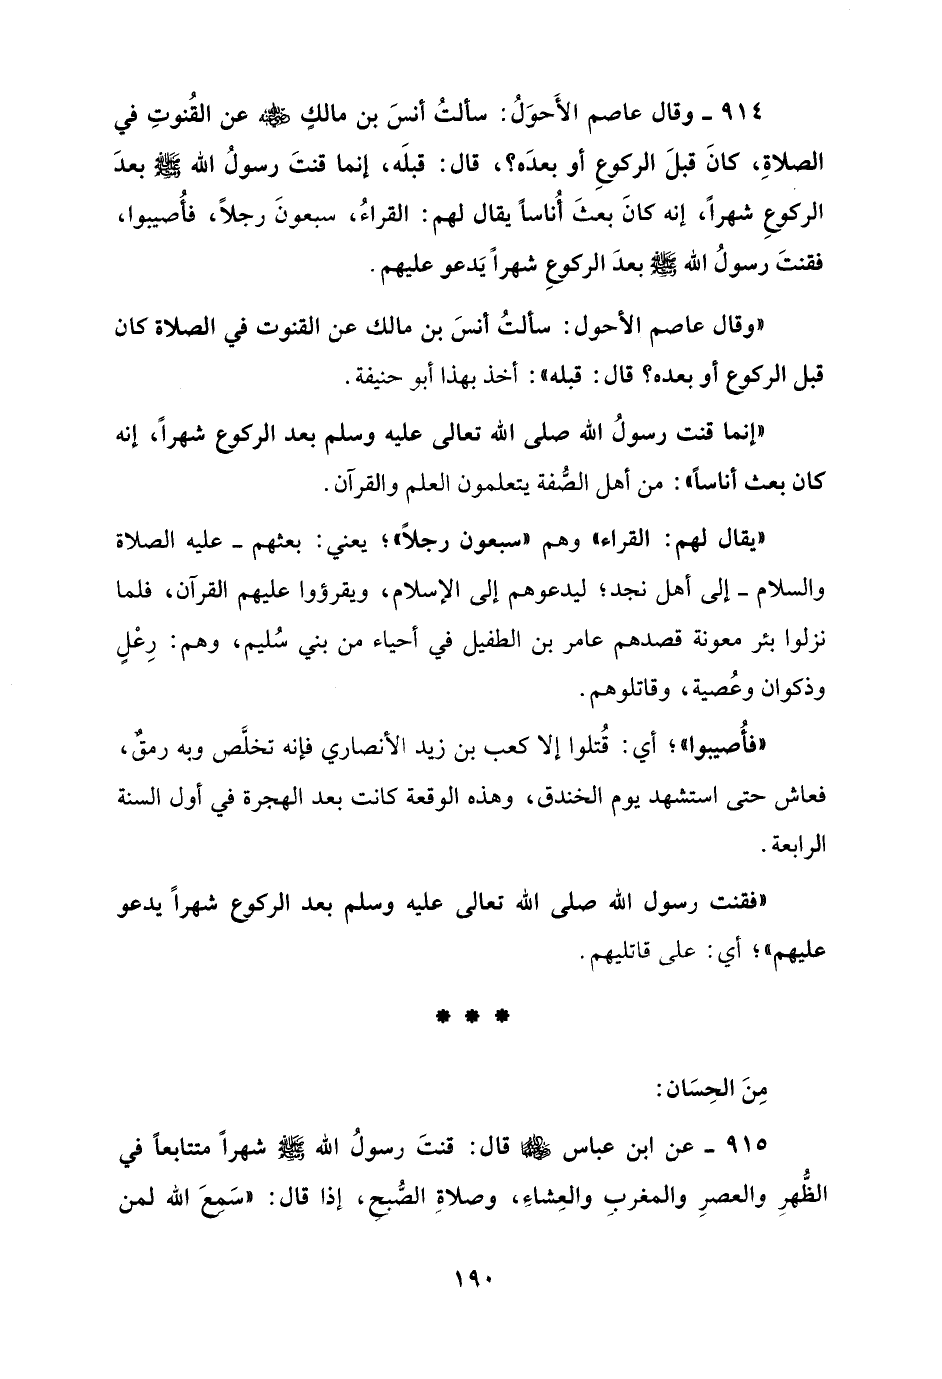 ٩١٤ ـ وقال عاصم الأَحوَلُ: سألتُ أنسَ بن مالكٍ رضي الله عنه عن القُنوتِ في
الصلاةِ، كانَ قبلَ الركوعِ أو بعدَه؟، قال: قبلَه، إنما قنتَ رسولُ الله ﷺ بعدَ
الركوعِ شهراً، إنه كانَ بعثَ أُناساً يقال لهم: القراءُ، سبعونَ رجلاً، فأُصيبوا،
فقنتَ رسولُ الله ﷺ بعدَ الركوعِ شهراً يَدعو عليهم.
«وقال عاصم الأحول: سألتُ أنسَ بن مالك عن القنوت في الصلاة كان
قبل الركوع أو بعده؟ قال: قبله»: أخذ بهذا أبو حنيفة.
«إنما قنت رسولُ الله صلى الله تعالى عليه وسلم بعد الركوع شهراً، إنه
كان بعث أناساً»: من أهل الصُّفة يتعلمون العلم والقرآن.
«يقال لهم: القراء» وهم «سبعون رجلاً»؛ يعني: بعثهم ـ عليه الصلاة
والسلام ـ إلى أهل نجد؛ ليدعوهم إلى الإسلام، ويقرؤوا عليهم القرآن، فلما
نزلوا بئر معونة قصدهم عامر بن الطفيل في أحياء من بني سُليم، وهم: رِعْلٍ
وذكوان وعُصية، وقاتلوهم.
«فأُصيبوا»؛ أي: قُتلوا إلا كعب بن زيد الأنصاري فإنه تخلَّص وبه رمقٌ،
فعاش حتى استشهد يوم الخندق، وهذه الوقعة كانت بعد الهجرة في أول السنة
الرابعة.
«فقنت رسول الله صلى الله تعالى عليه وسلم بعد الركوع شهراً يدعو
عليهم»؛ أي: على قاتليهم.
* * *
مِنَ الحِسَان:
٩١٥ ـ عن ابن عباس رضي الله عنهما قال: قنتَ رسولُ الله ﷺ شهراً متتابعاً في
الظُّهرِ والعصرِ والمغربِ والعِشاءِ، وصلاةِ الصُّبحِ، إذا قال: «سَمِعَ الله لمن
١٩٠